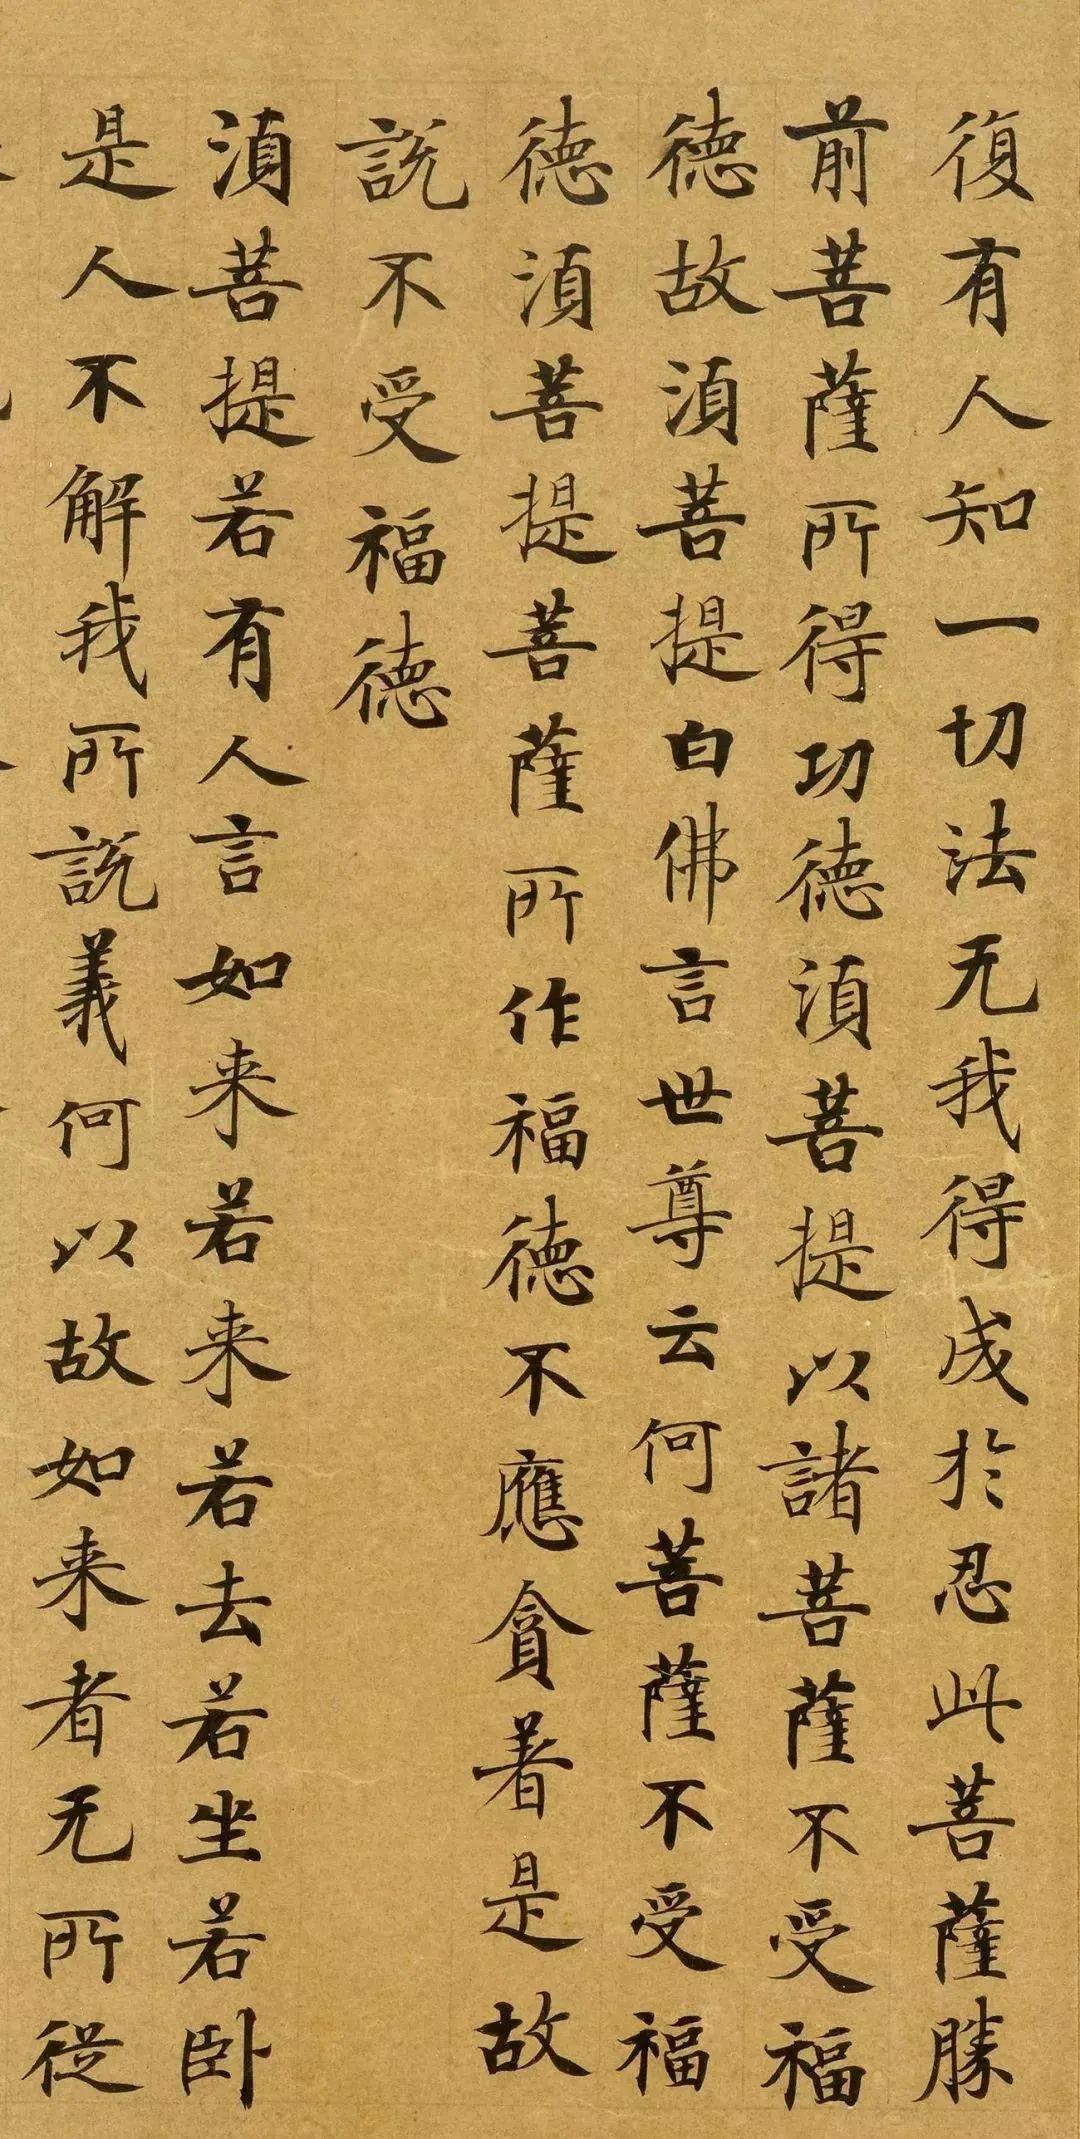 復有人知一切法无我得成於忍此菩薩勝
前菩薩所得功德湏菩提以諸菩薩不受福
德故湏菩提白佛言世尊云何菩薩不受福
德湏菩提菩薩所作福德不應貪著是故
説不受福德
湏菩提若有人言如来若来若去若坐若卧
是人不解我所説義何以故如来者无所從